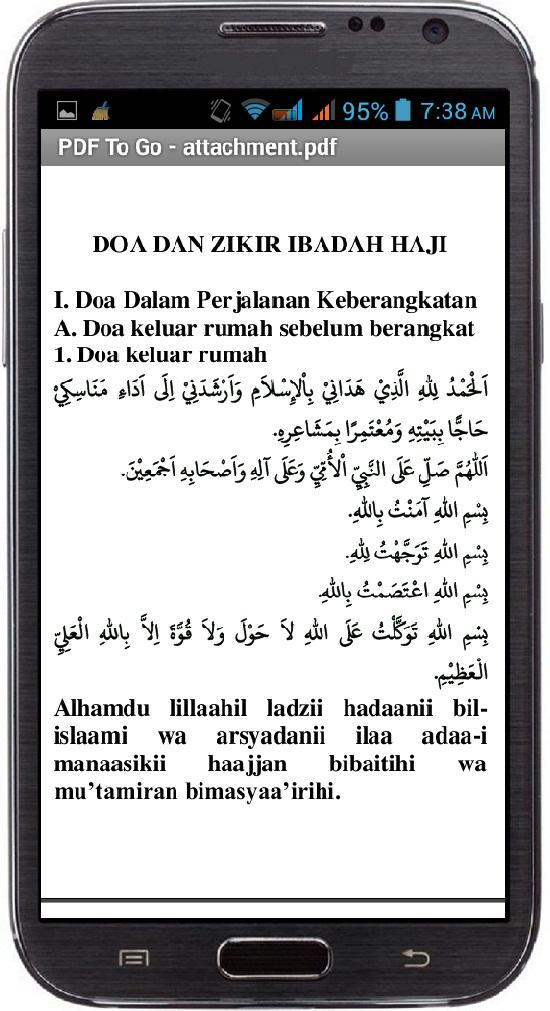 95% 7:38 AM
PDF To Go - attachment.pdf
DOA DAN ZIKIR IBADAH HAJI
I. Doa Dalam Perjalanan Keberangkatan
A. Doa keluar rumah sebelum berangkat
1. Doa keluar rumah
اَلْحَمْدُ لِلّٰهِ الَّذِيْ هَدَانِيْ بِاْلإِسْلاَمِ وَاَرْشَدَنِيْ اِلَى اَدَاءِ مَنَاسِكِيْ
حَاجًّا بِبَيْتِهِ وَمُعْتَمِرًا بِمَشَاعِرِهِ.
اَللّٰهُمَّ صَلِّ عَلَى النَّبِيِّ اْلأُمِّيِّ وَعَلَى آلِهِ وَاَصْحَابِهِ اَجْمَعِيْنَ.
بِسْمِ اللهِ آمَنْتُ بِاللهِ.
بِسْمِ اللهِ تَوَجَّهْتُ لِلّٰهِ.
بِسْمِ اللهِ اعْتَصَمْتُ بِاللهِ.
بِسْمِ اللهِ تَوَكَّلْتُ عَلَى اللهِ لاَ حَوْلَ وَلاَ قُوَّةَ اِلاَّ بِاللهِ الْعَلِيِّ
الْعَظِيْمِ.
Alhamdu lillaahil ladzii hadaanii bil-
islaami wa arsyadanii ilaa adaa-i
manaasikii haajjan bibaitihi wa
mu'tamiran bimasyaa'irihi.